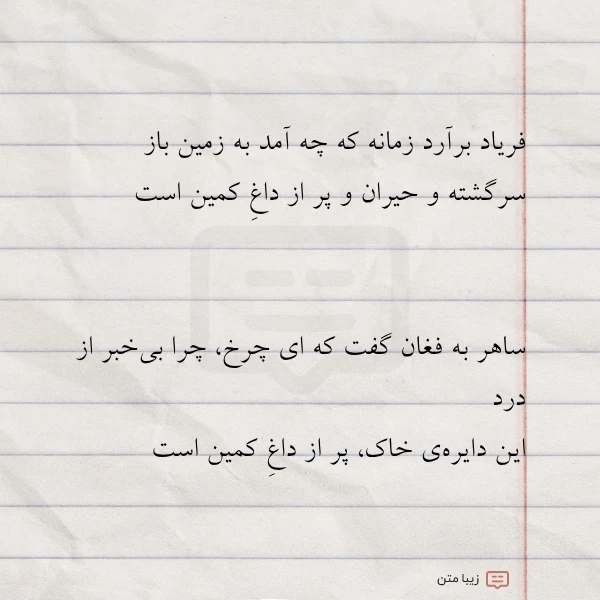 فریاد برآرد زمانه که چه آمد به زمین باز
سرگشته و حیران و پر از داغِ کمین است
ساهر به فغان گفت که ای چرخ، چرا بی‌خبر از
درد
این دایره‌ی خاک، پر از داغِ کمین است
زیبا متن